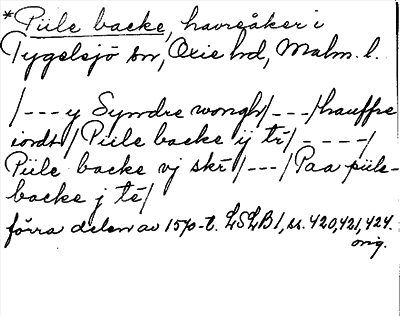 *Piile backe, havreåker i
Tygelsjö sn, Oxie hd, Malm. l.
/---y Syndre wongh/---/hauffre
iordt/Piile backe ij tr/----/
Piile backe vj skr/---/Paa piile-
backe j te/
förra delen av 1570-t. LSLB1, s. 420,421,424.
orig.